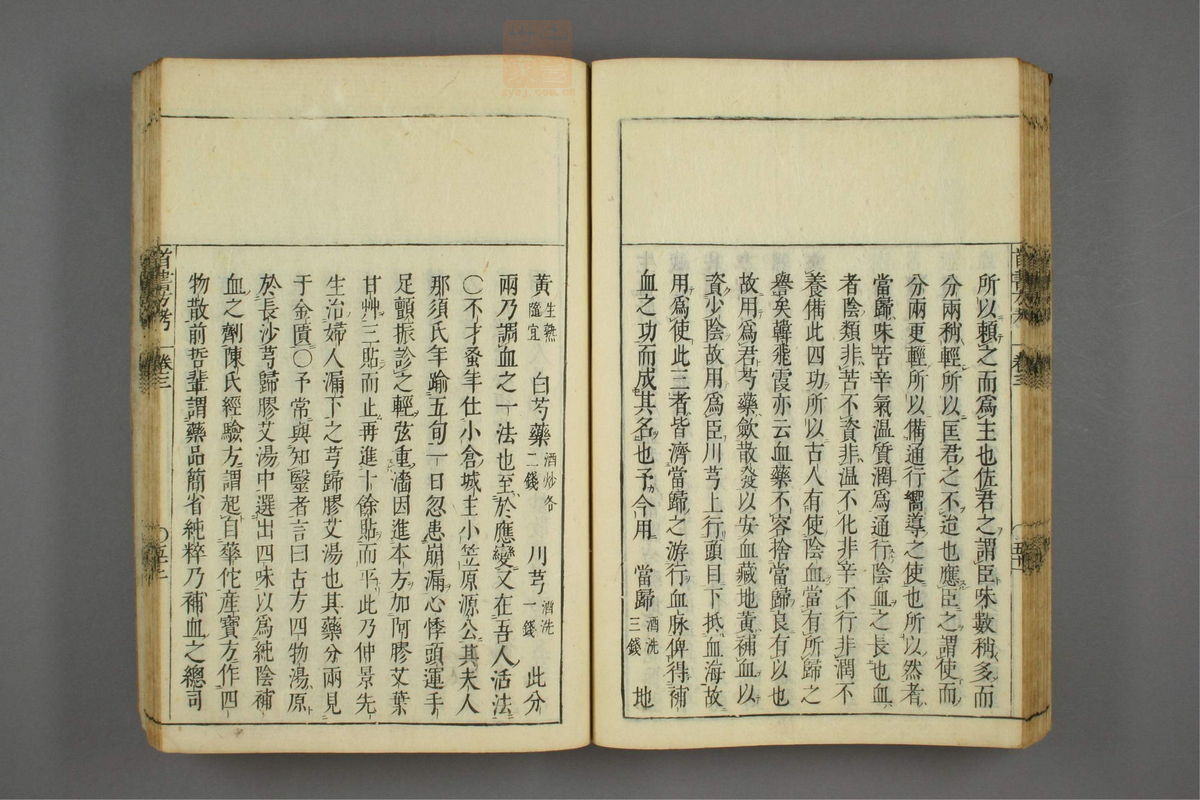 所以賴之而爲主也佐君之謂臣味數稍多而
分兩稍輕所以匡君之不迨也應臣之謂使而
分兩更輕所以備通行嚮導之使也所以然者
當歸味苦辛氣温質潤爲通行陰血之長也血
者陰類非苦不資非温不化非辛不行非潤不
養備此四功所以古人有使陰血當有所歸之
譽矣韓飛霞亦云血藥不容捨當歸良有以也
故用爲君芍藥歛散發以安血藏地黃補血以
資少陰故用爲臣川芎上行頭目下抵血海故
用爲使此三者皆濟當歸之游行血脉俾得補
血之功而成其名也予今用 當歸 酒洗三錢 地
黃 生熟隨宜 白芍藥 酒炒各二錢 川芎 酒洗一錢 此分
兩乃謂血之一法也至於應變又在吾人活法
〇不才蚤年仕小倉城主小笠原源公其夫人
那須氏年踰五旬一日忽患崩漏心悸頭運手
足顫振診之輕弦重濇因進本方加阿膠艾葉
甘艸三貼而止再進十餘貼而平此乃仲景先
生治婦人漏下之芎歸膠艾湯也其藥分兩見
于金匱〇予常與知毉者言曰古方四物湯原
於長沙芎歸膠艾湯中選出四味以爲純陰補
血之劑陳氏經驗方謂起自華佗産寶方作四
物散前哲輩謂藥品簡省純粹乃補血之總司
首書方考 卷三